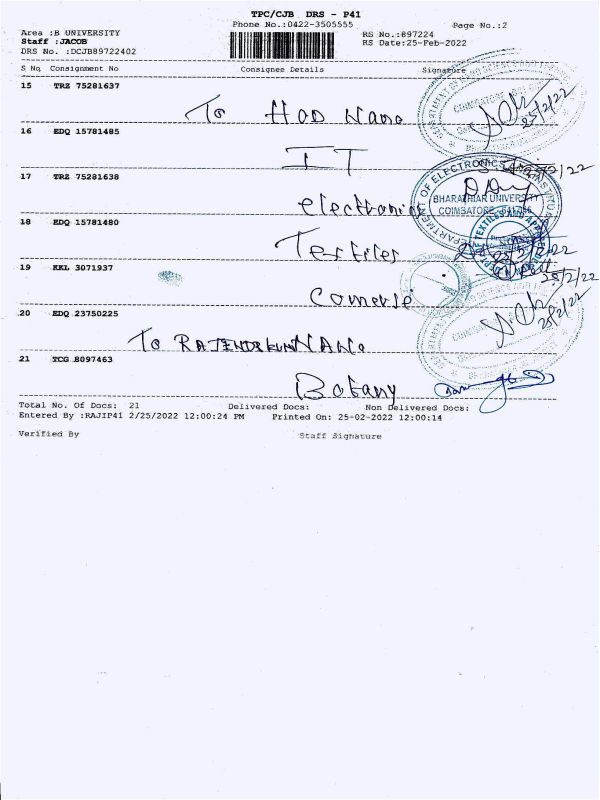 TPC/CJB DRS - P41
Phone No.:0422-3505555
Page No.:2
Area :B UNIVERSITY
Staff :JACOB
DRS No. :DCJB89722402
RS No.:897224
RS Date:25-Feb-2022
S No Consignment No Consignee Details Signature
15 TRZ 75281637
To HOD Nano
25/2/22
16 EDQ 15781485
IT
17 TRZ 75281638
electronics
BHARATHIAR UNIVERSITY
COIMBATORE
18 EDQ 15781480
Textiles
19 KKL 3071937
25/2/22
Comerse
20 EDQ 23750225
25/2/22
To
21 TCG 8097463
Botany
Total No. Of Docs: 21 Delivered Docs: Non Delivered Docs:
Entered By :RAJIP41 2/25/2022 12:00:24 PM Printed On: 25-02-2022 12:00:14
Verified By Staff Signature